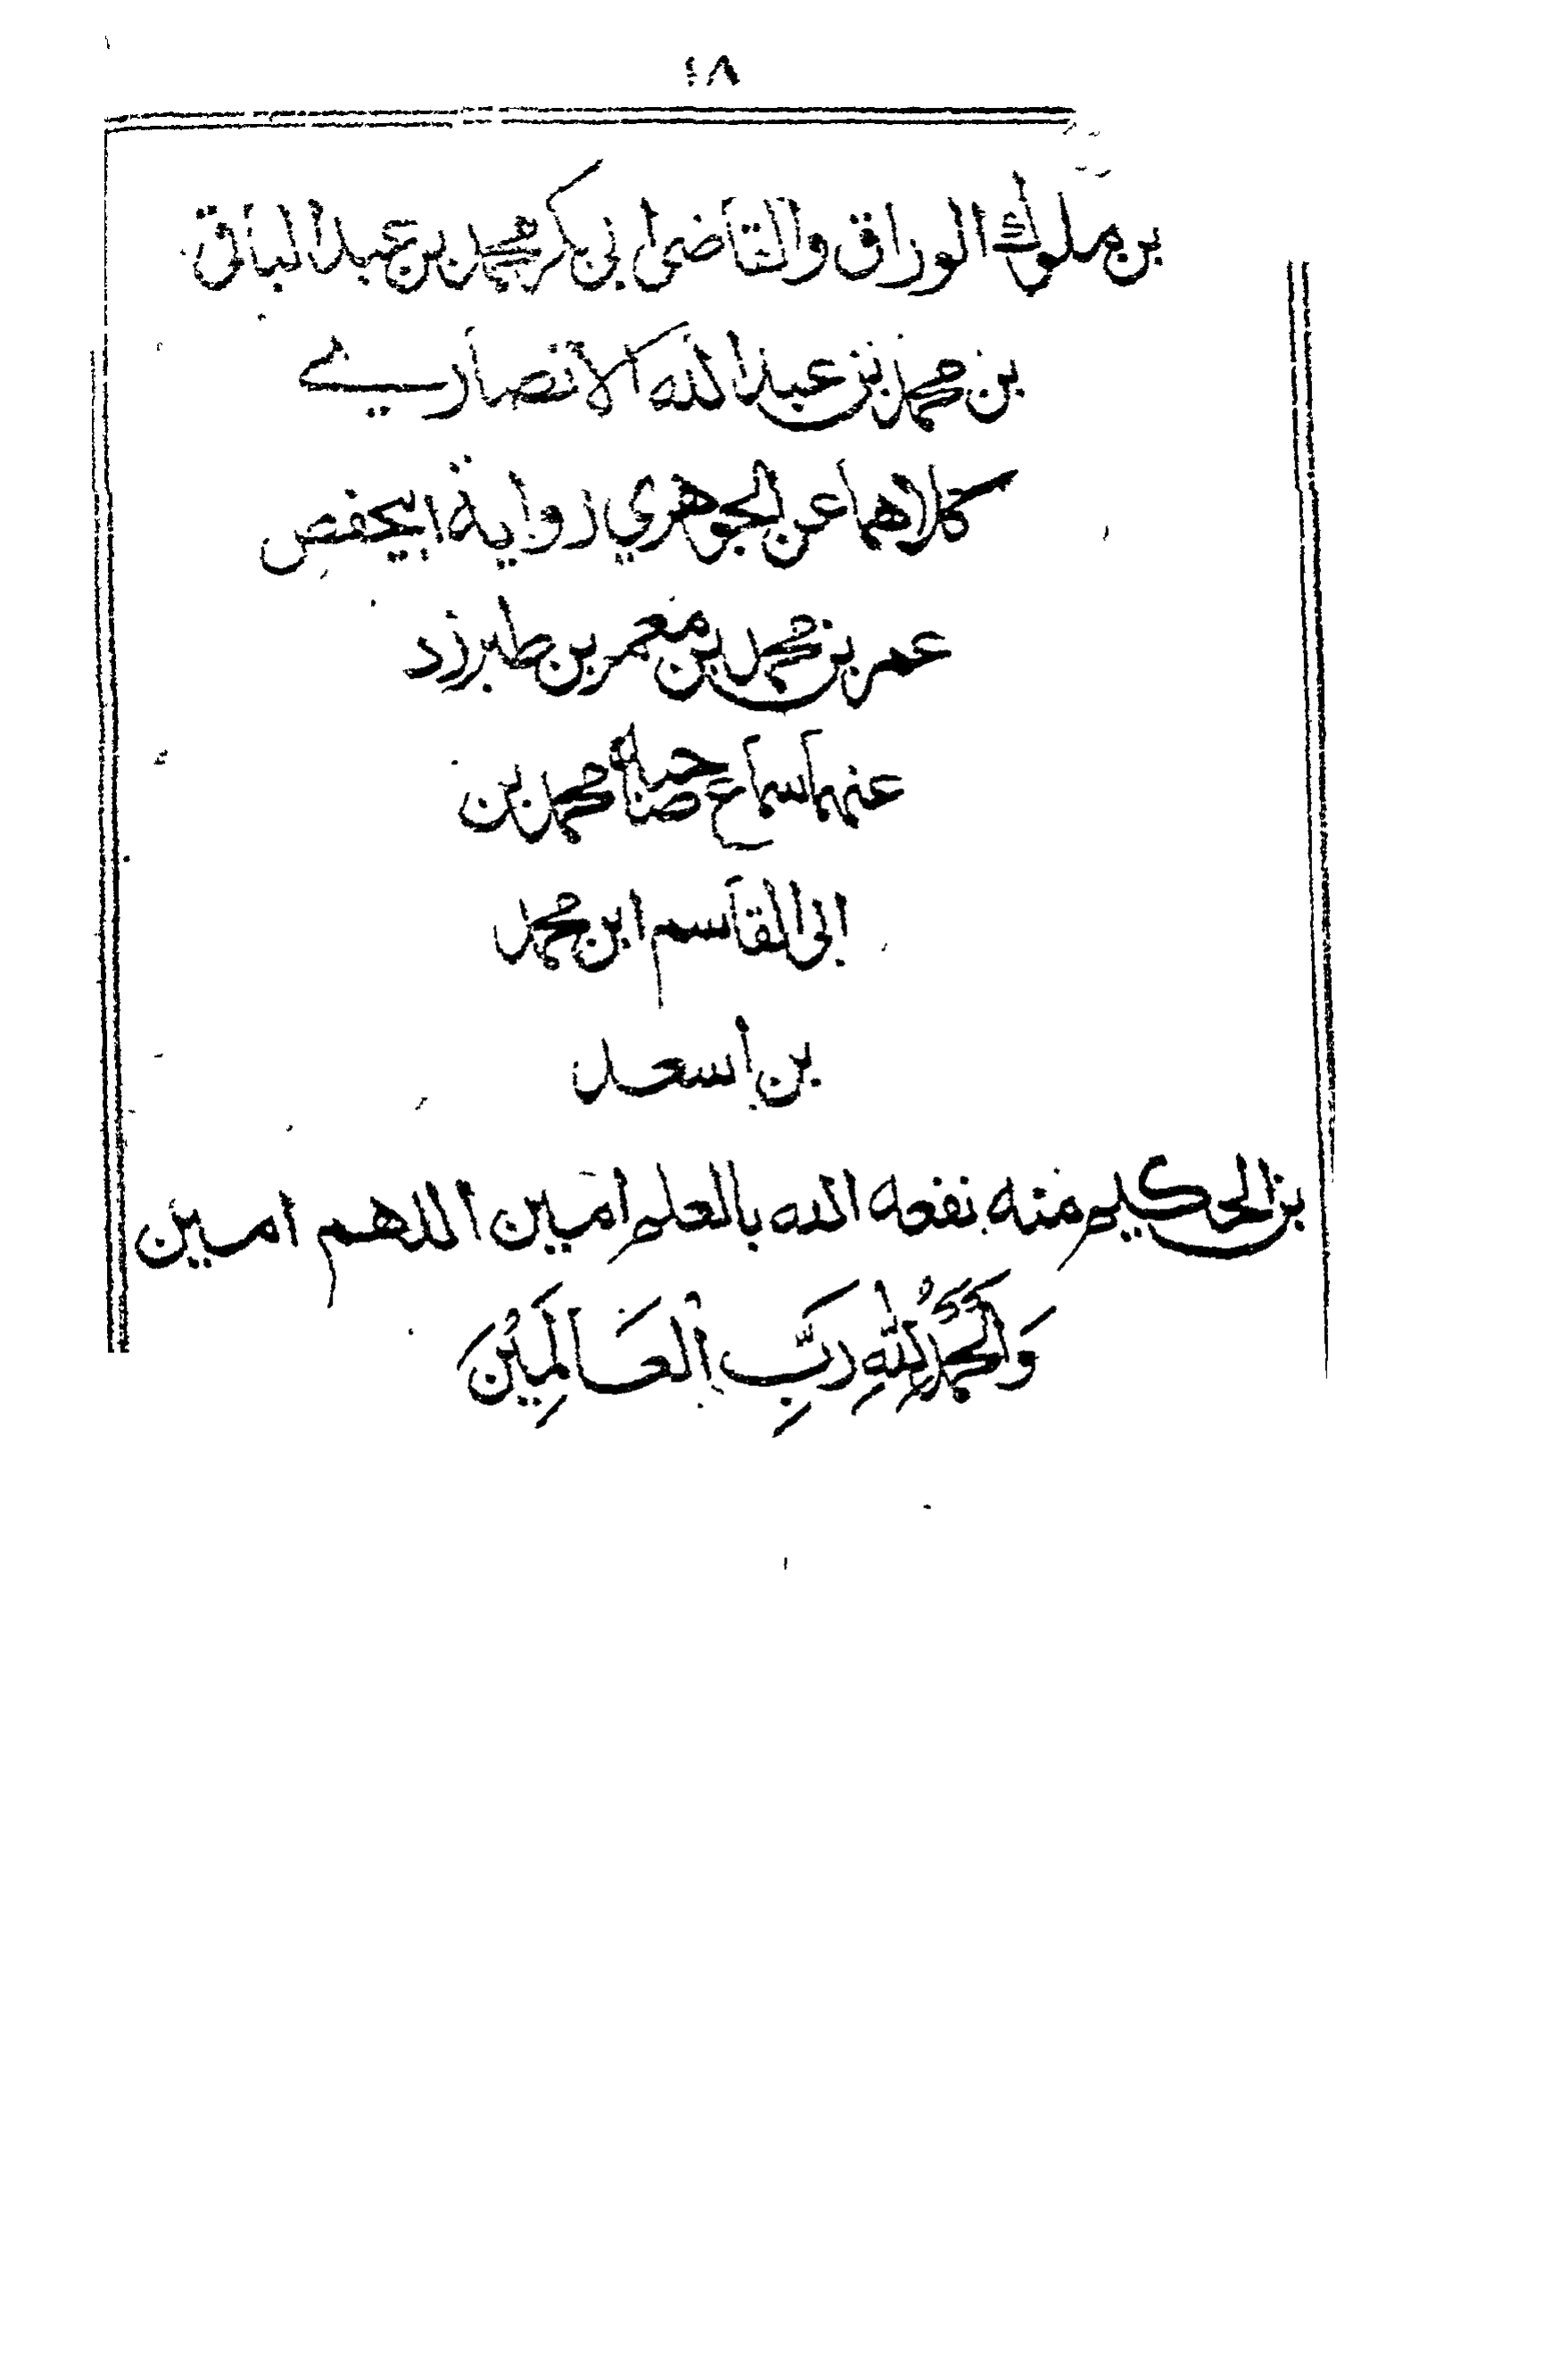 ٤٨
بن ملوك الوراق والقاضى ابى بكر محمد بن عبد الباقى
بن محمد بن عبد الله الانصاري
كلاهما عن الجوهري رواية ابي حفص
عمر بن محمد بن معمر بن طبرزد
عنهما سماع صاحبه محمد بن
ابى القاسم ابن محمد
بن أسعد
بن الحكيم منه نفعه الله بالعلم امين اللهم امين
وَالْحَمْدُ لِلّٰهِ رَبِّ الْعَالَمِيْنَ